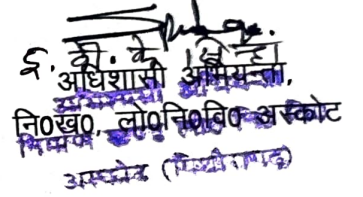 अधिशासी अभियन्ता,
नि०ख०, लो०नि०वि० अस्कोट
अस्कोट (पिथौरागढ़)